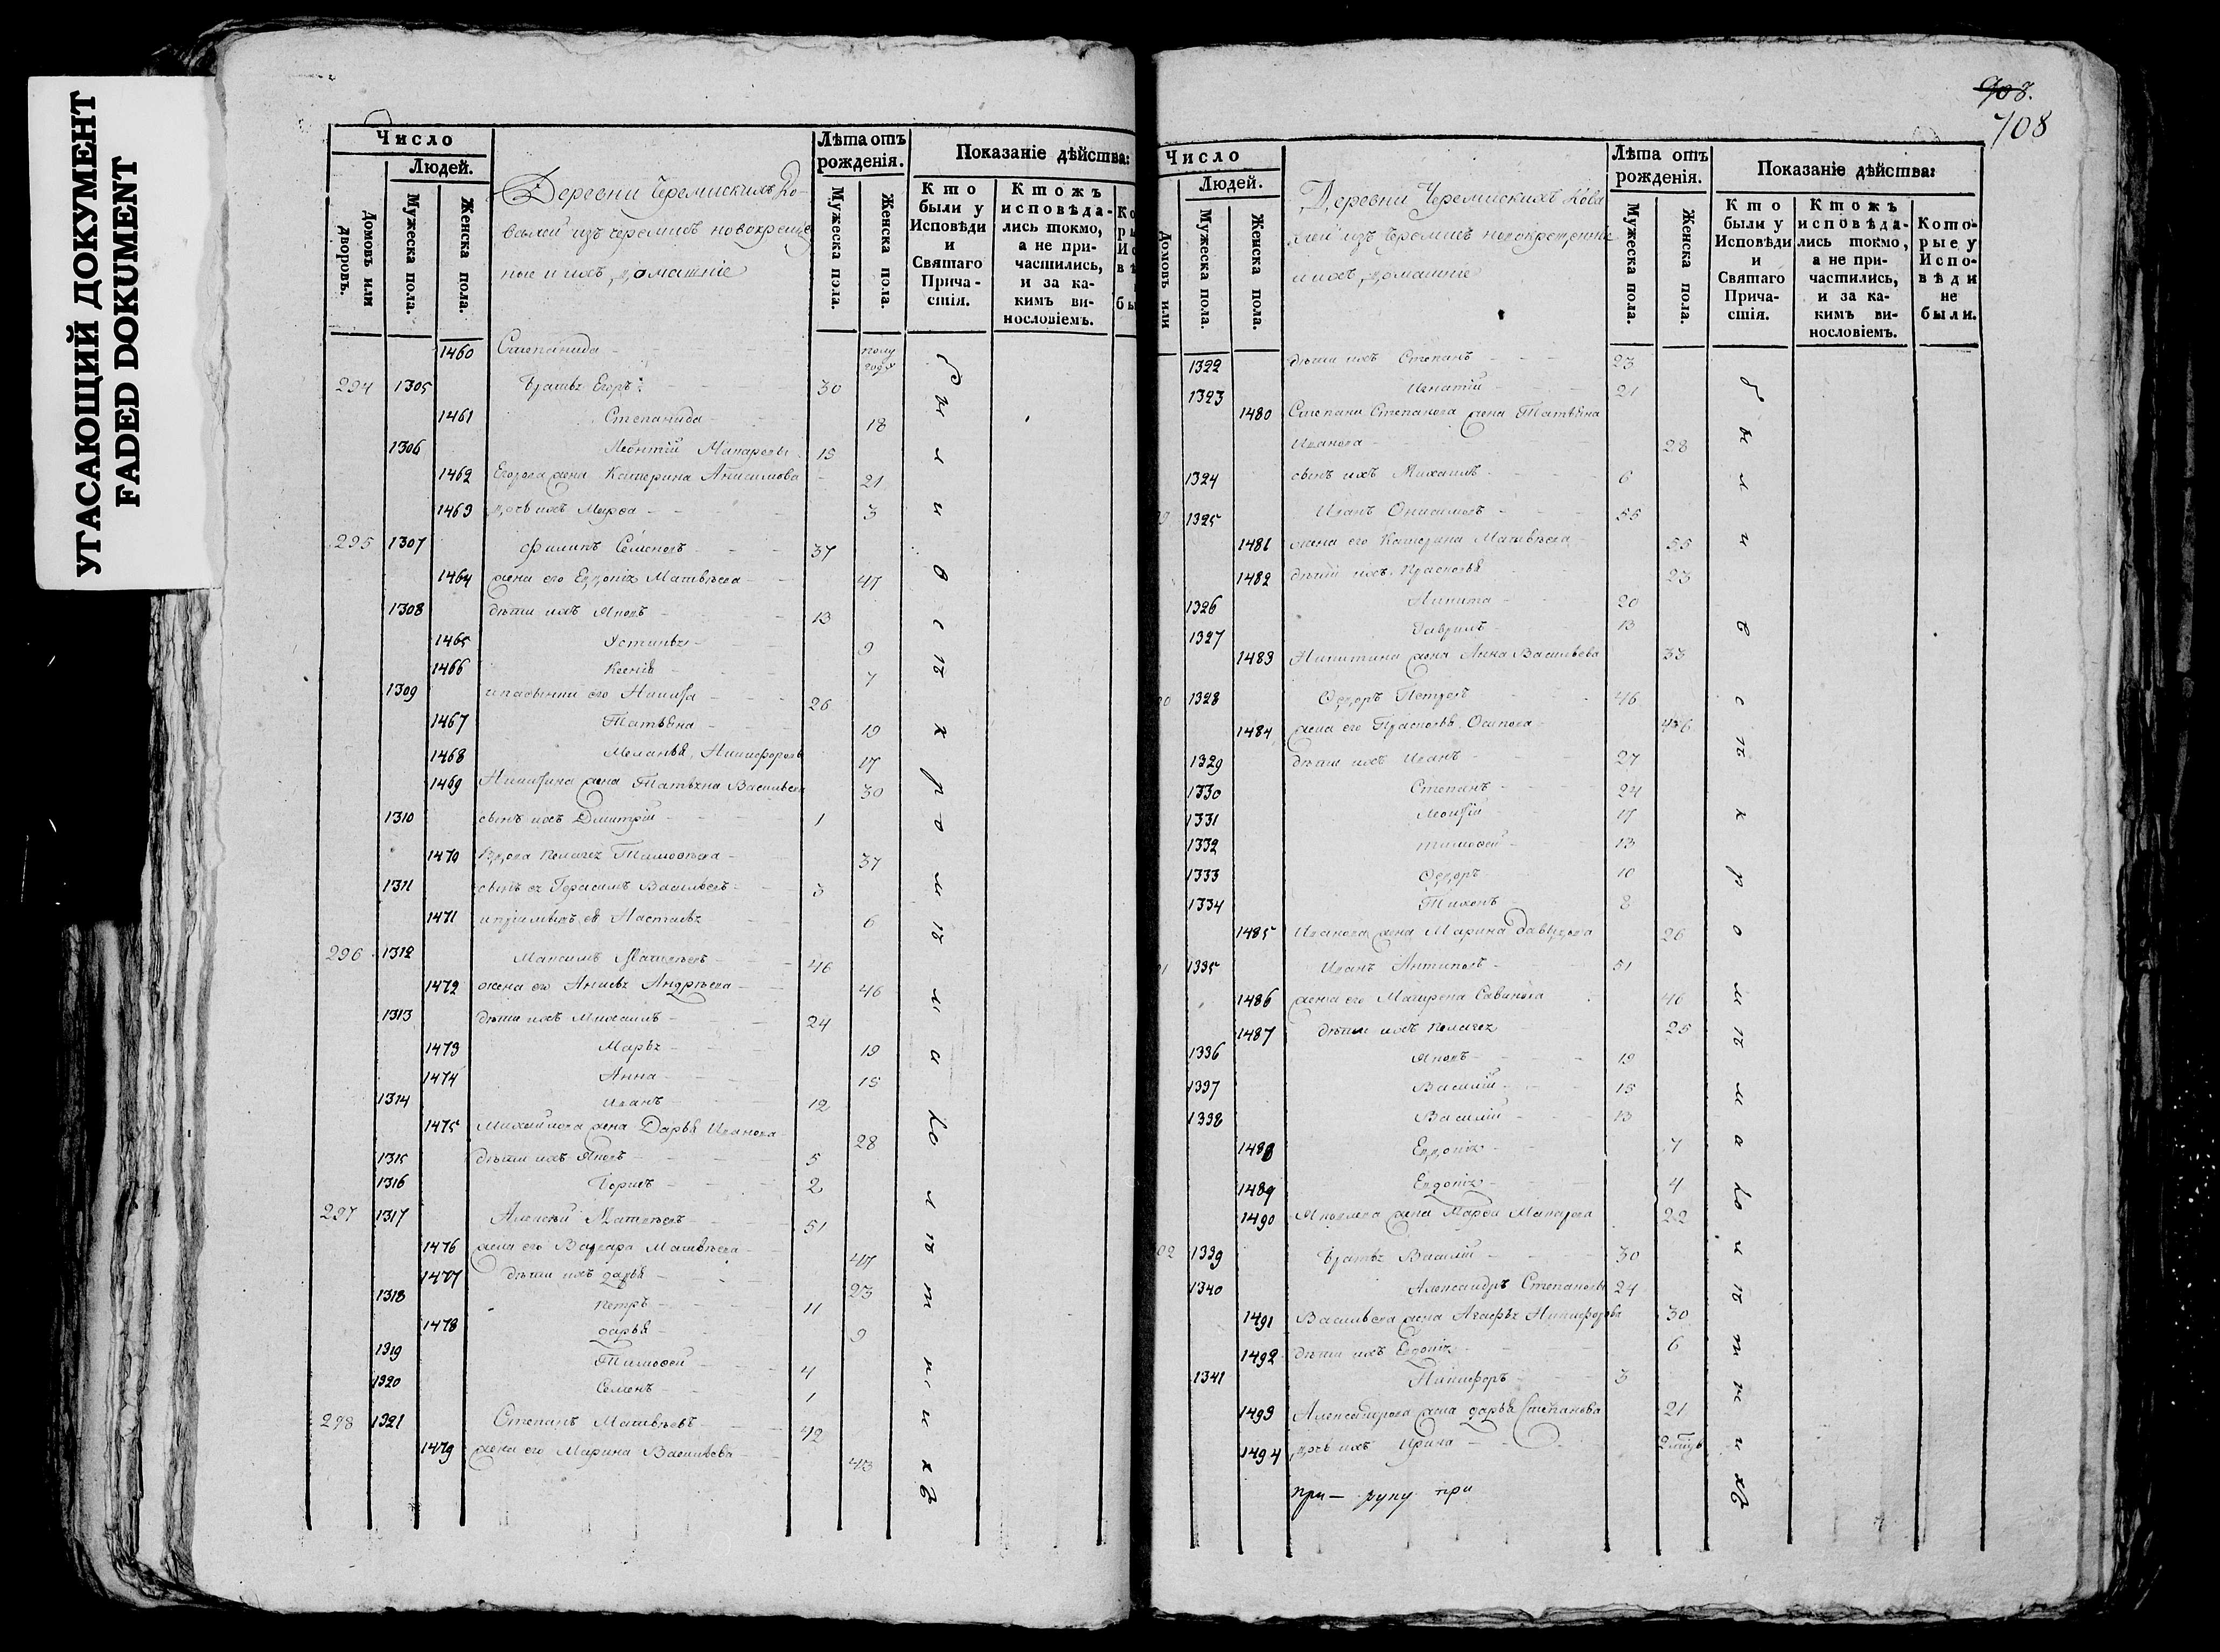 УГАСАЮЩИЙ ДОКУМЕНТ
FADED DOKUMENT
Число
Людей.
Домовъ или дворовъ.
Мужеска пола.
Женска пола.
Деревни Черемискихъ Ко-
валей изъ черемисъ новокреще
ные и ихъ домашніе
Лѣта отъ рожденія.
Мужеска пола.
Женска пола.
Показаніе дѣйства:
Кто были у Исповѣди и Святаго Прича-стія.
Ктожъ исповѣда-лись токмо, а не при-частились, и за ка-кимъ ви-нословіемъ.
1460 Степанида полу года
294 1305 Братья Егоръ 30
1461 Степанида 18
1306 Леонтій Макаровы 15
1462 Егорова жена Катерина Анисимова 21
1463 дочь ихъ Марѳа 3
295 1307 Филипъ Семеновъ 37
1464 жена его Евдокія Матвѣева 47
1308 дѣти ихъ Яковъ 13
1465 Устинья 9
1466 Ксенія 7
1309 и пасынки его Никита 26
1467 Татьяна 19
1468 Меланья Никифоровы 17
1469 Никитина жена Татьяна Васильева 30
1310 сынъ ихъ Дмитрій 1
1470 Вдова Пелагея Тимоѳеева 37
1311 сынъ ея Герасимъ Васильевъ 3
1471 и пріимышъ ея Настасья 6
296 1312 Максимъ Матвѣевъ 46
1472 жена его Анисья Андрѣева 46
1313 дѣти ихъ Михаилъ 24
1473 Марья 19
1474 Анна 15
1314 Иванъ 12
1475 Михайлова жена Дарья Иванова 28
1315 дѣти ихъ Яковъ 5
1316 Борисъ 2
297 1317 Алексѣй Матвѣевъ 51
1476 жена его Варвара Матвѣева 47
1477 дѣти ихъ Дарья 23
1318 Петръ 11
1478 Дарья 9
1319 Тимоѳей 4
1320 Семенъ 1
298 1321 Степанъ Матвѣевъ 42
1479 жена его Марина Васильева 43
были
въ
908.
708
Число
Людей.
Домовъ или
Мужеска пола.
Женска пола.
Деревни Черемискихъ Кова
лей изъ Черемисъ новокрещенные
и ихъ домашніе
Лѣта отъ рожденія.
Мужеска пола.
Женска пола.
Показаніе дѣйства:
Кто были у Исповѣди и Святаго Прича-стія.
Ктожъ исповѣда-лись токмо, а не при-частились, и за ка-кимъ ви-нословіемъ.
Кото-рые у Испо-вѣди не были.
1322 дѣти ихъ Степанъ 23
1323 Игнатій 21
1480 Степана Степанова жена Татьяна
Иванова 28
1324 сынъ ихъ Михаилъ 6
1325 Иванъ Онисимовъ 55
1481 жена его Катерина Матвѣева 55
1482 дѣти ихъ Прасковья 23
1326 Никита 20
1327 Гаврилъ 13
1483 Никитина жена Анна Васильева 33
1328 Ѳедоръ Петровъ 46
1484 жена его Прасковья Осипова 46
1329 дѣти ихъ Иванъ 27
1330 Степанъ 24
1331 Моисѣй 17
1332 Тимоѳей 13
1333 Ѳедоръ 10
1334 Тихонъ 8
1485 Иванова жена Марина Давыдова 26
1335 Иванъ Антиповъ 51
1486 жена его Матрена Савинова 46
1487 дѣти ихъ Пелагея 25
1336 Яковъ 19
1337 Василій 15
1338 Василій 13
1488 Евдокія 7
1489 Евдокія 4
1490 Яковлева жена Марѳа Макарова 22
1339 Братья Василій 30
1340 Александръ Степановы 24
1491 Васильева жена Агафья Никифорова 30
1492 дѣти ихъ Евдокія 6
1341 Никифоръ 3
1493 Александрова жена Дарья Степанова 21
1494 дочь ихъ Ирина 2 мѣцъ
были
при— руку при